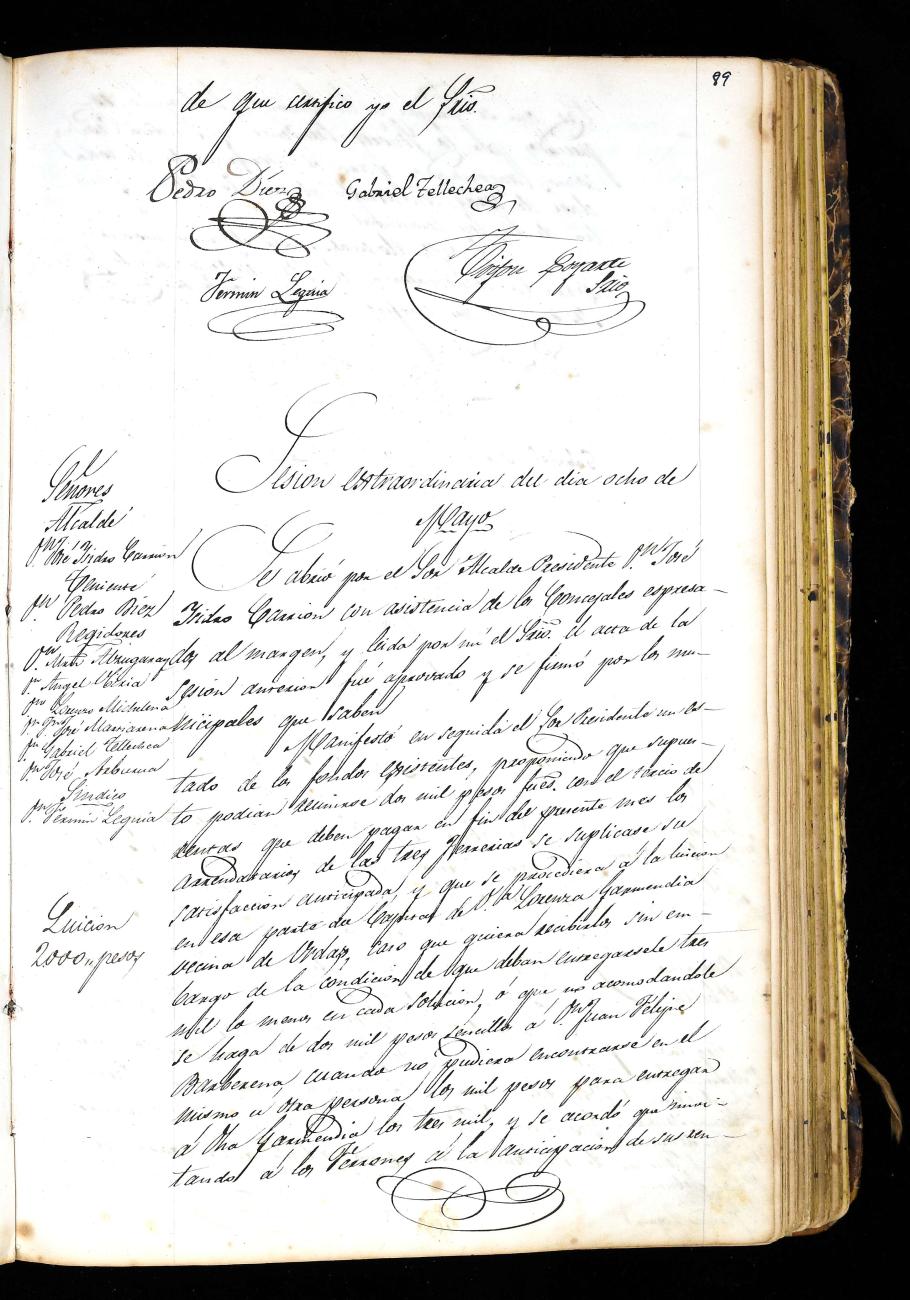 89
de que certifico yo el Srio.
Pedro Diez
Gabriel Tellechea
Fermin Leguia
Srio
Sesion extraordinaria del dia ocho de
Mayo
Señores
Alcalde
Dn. José Isidro Carrion
Teniente
Dn. Pedro Diez
Regidores
Dn. Angel
Dn. Lorenzo Michelena
Dn. José Mariarena
Dn. Gabriel Tellechea
Dn. José
Sindico
Dn. Fermin Leguia
Se abrió por el Sor Alcalde Presidente Dn. José
Isidro Carrion con asistencia de los Concejales espresa-
dos al margen, y leida por mí el Srio. el acta de la
sesion anterior fué aprovado y se firmó por los mu-
nicipales que saben
Manifestó en seguida el Sor Presidente un es-
tado de los fondos existentes, proponiendo que supues-
to podian reunirse dos mil pesos ftes. con el tercio de
rentas que deben pagar en fin del presente mes los
Arrendatarios de las tres Ferrerias se suplicase su
satisfaccion anticipada y que se procediera a la luicion
en esa parte da Capital de D.ª Lorenza Garmendia
vecina de Ordax, caso que quiera recibirlos sin em-
bargo de la condicion de que deban entregarsele tres
mil lo menos en cada solucion, ó que no acomodandole
se haga de dos mil pesos sencillos á Dn. Juan Felipe
Barberena, cuando no pudiera encontrarse en el
mismo ú otra persona los mil pesos para entregar
á dha Garmendia los tres mil, y se acordó que invi-
tando á los Ferrones á la anticipacion de sus ren-
Luicion
2000,, pesos